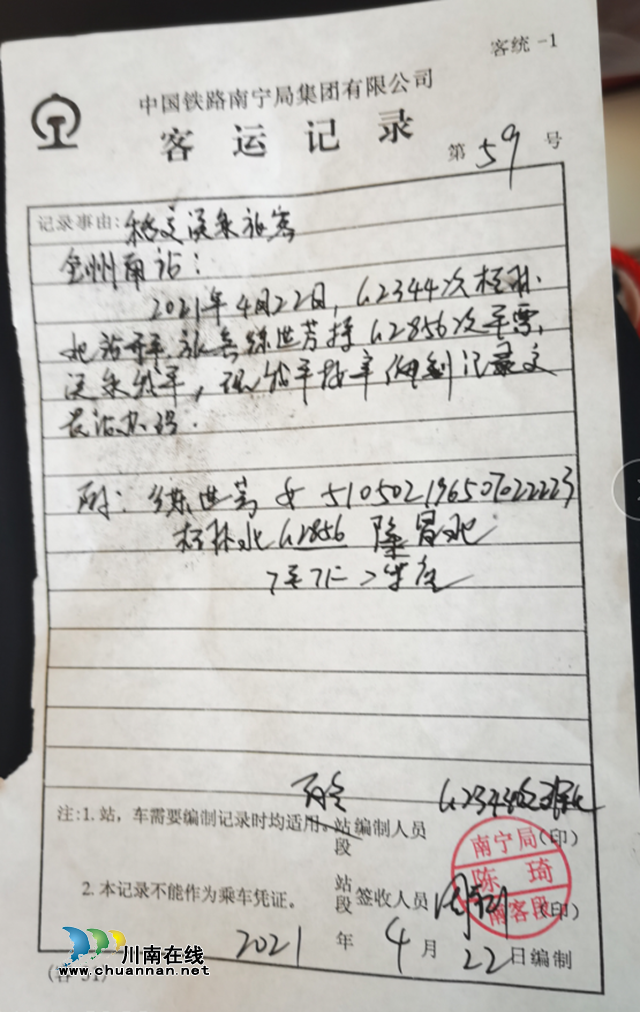 客统-1
中国铁路南宁局集团有限公司
客运记录
第 59 号
记录事由:移交误乘旅客
全州南站:
2021年4月22日,G2344次桂林
北站开车,旅客练世芳持G2856次车票,
误乘我车,现
交
贵站办理.
附:练世芳 女
桂林北 G2856 隆昌北
二等座
注:1.站,车需要编制记录时均适用。
站
段
编制人员
(印)
2.本记录不能作为乘车凭证。
站
段
签收人员
(印)
南宁局
陈琦
南客段
2021 年 4 月 22 日编制
川南在线
www.chuannan.net